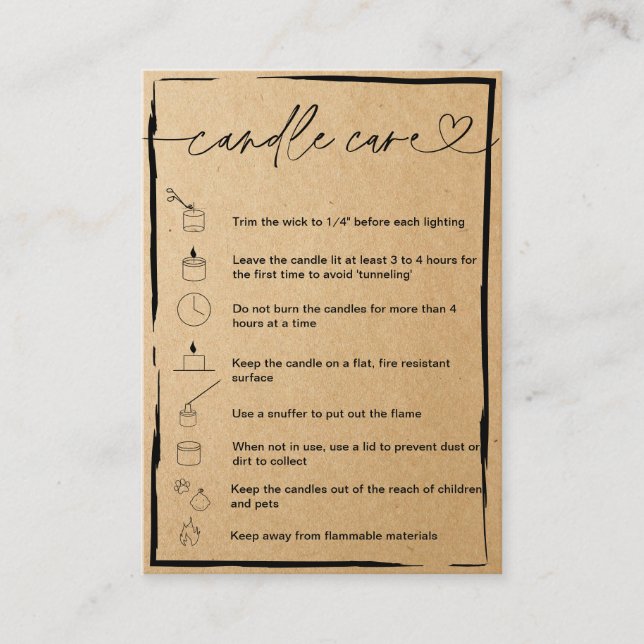 candle care
Trim the wick to 1/4" before each lighting
Leave the candle lit at least 3 to 4 hours for
the first time to avoid 'tunneling'
Do not burn the candles for more than 4
hours at a time
Keep the candle on a flat, fire resistant
surface
Use a snuffer to put out the flame
When not in use, use a lid to prevent dust or
dirt to collect
Keep the candles out of the reach of children
and pets
Keep away from flammable materials